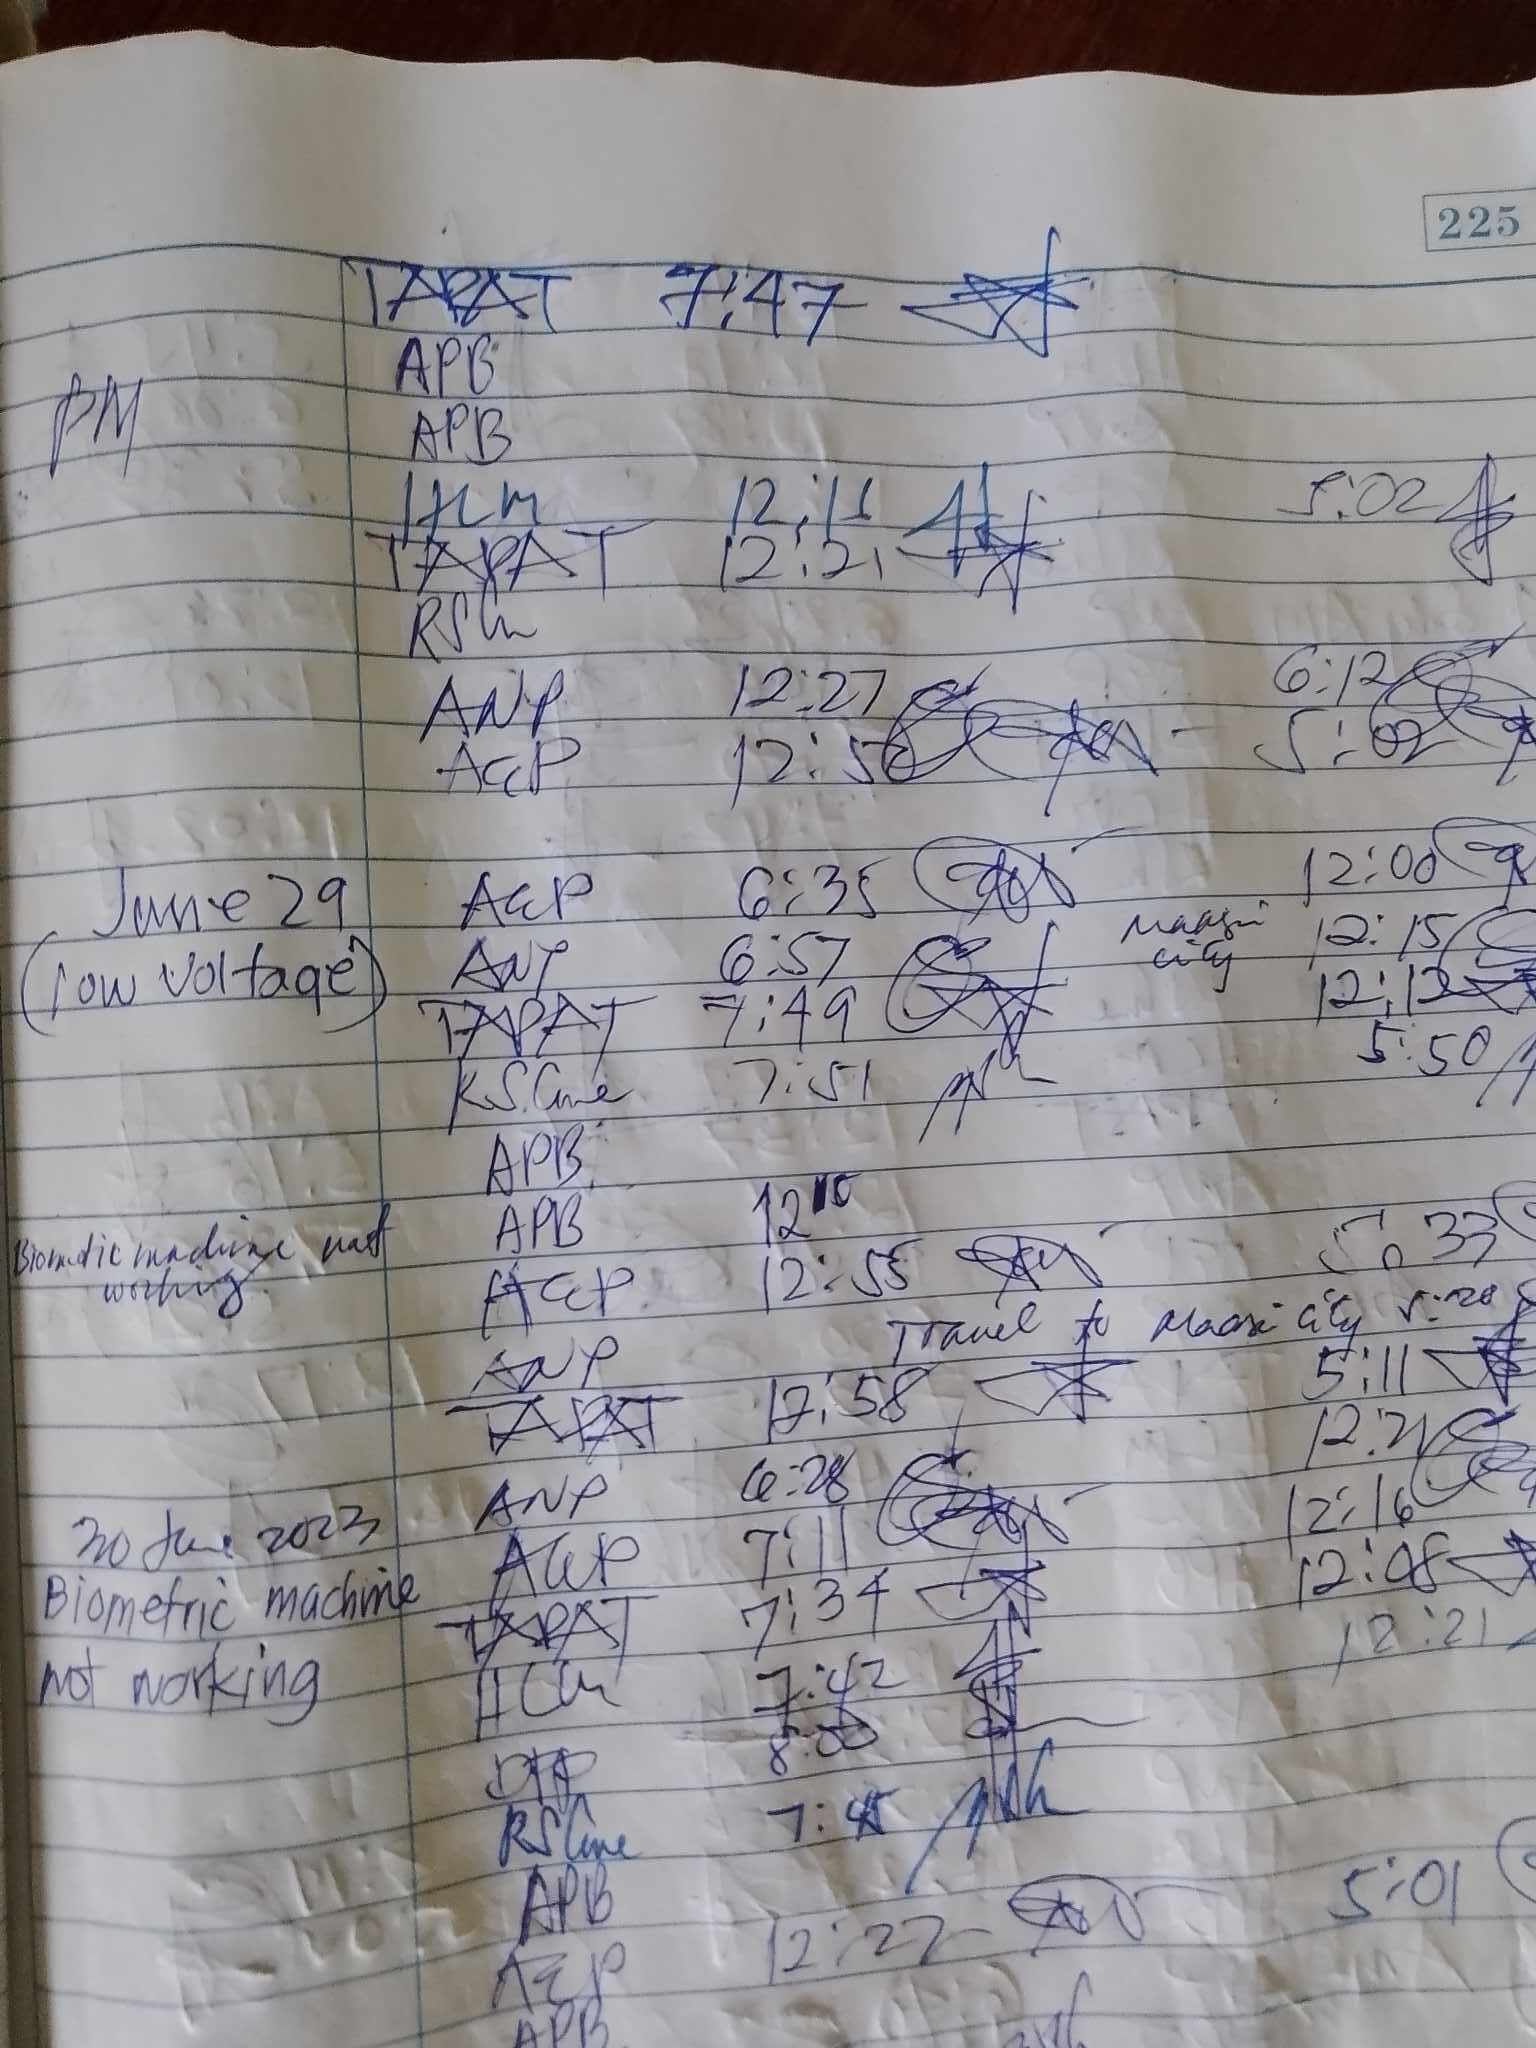 225
TAPAT 7:47
APB
PM
APB
HCM 12:11 5:02
TAPAT 12:21
RSLu
ANP 12:27 6:12
AEP 12:50 5:02
June 29 AEP 6:35 12:00
(low voltage) ANP 6:57 Maasin city 12:15
TAPAT 7:49 12:12
RSLine 7:51 5:50
APB
APB 12 10
Biometric machine not working. AEP 12:55 5:33
ANP Travel to Maasin city 5:20
TAPAT 12:58 5:11
ANP 6:28 12:21
30 June 2023 AEP 7:11 12:16
Biometric machine TAPAT 7:34 12:08
not working HCM 7:42 12:21
DTP 8:00
RSLine 7:45
APB
AEP 12:27 5:01
APB